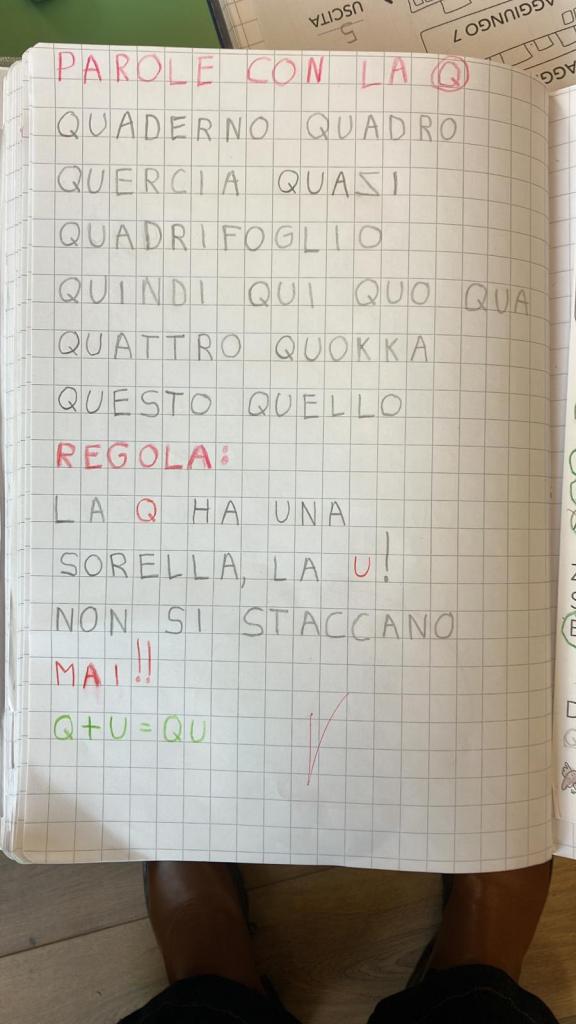 5
USCITA
AGGIUNGO 7
PAROLE CON LA Q
QUADERNO QUADRO
QUERCIA QUASI
QUADRIFOGLIO
QUINDI QUI QUO QUA
QUATTRO QUOKKA
QUESTO QUELLO
REGOLA:
LA Q HA UNA
SORELLA, LA U!
NON SI STACCANO
MAI!!
Q+U=QU